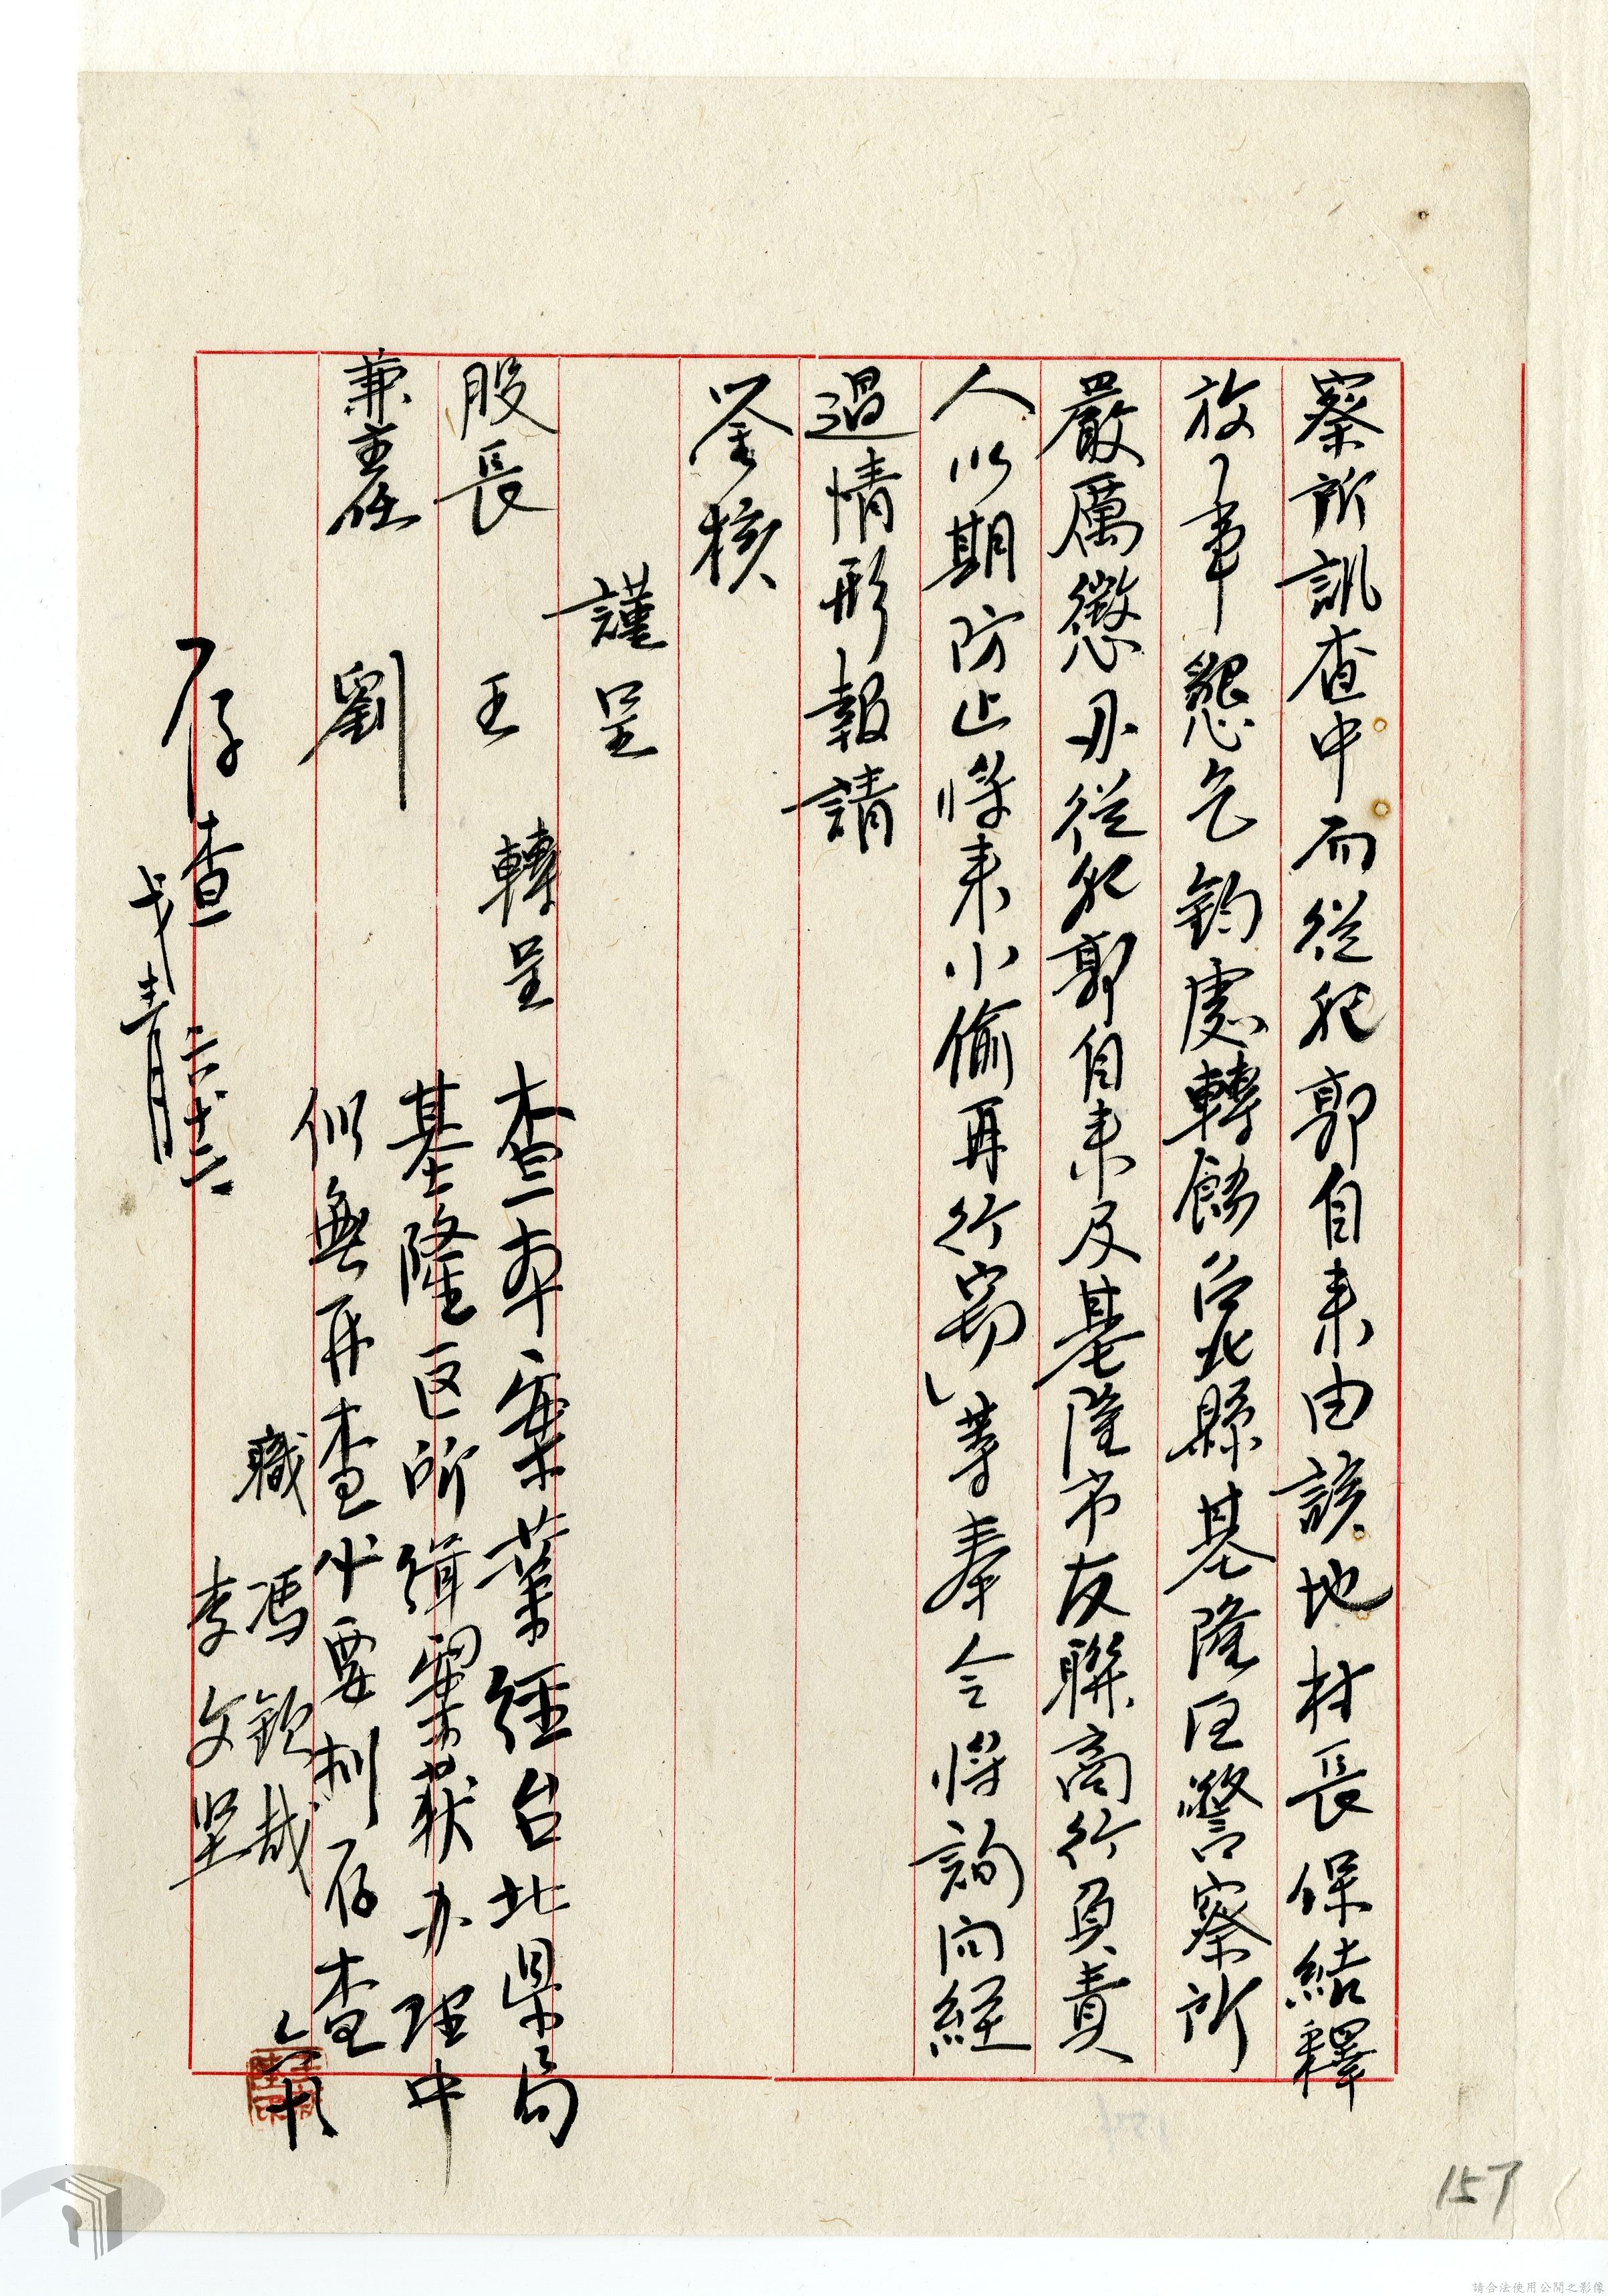 察所訊查中而從犯郭自来由該地村長保結釋
放了事懇乞鈞處轉飭台北縣基隆区警察所
嚴厲懲办從犯郭自来及基隆市友聯商行負責
人以期防止將来小偷再行竊」等奉令將詢问経
過情形報請
鉴核
謹呈
股長 王 轉呈
兼主任 劉
職 馮欽哉
李文坚
查本案業経台北県局
基隆区所緝案获办理中
似無再查必要擬存查
存查
157
請合法使用公開之影像